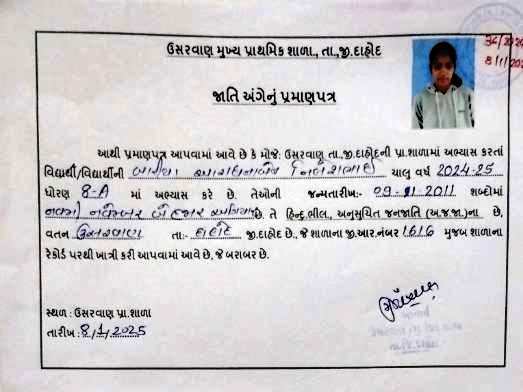 ઉસરવાણ મુખ્ય પ્રાથમિક શાળા, તા.,જી.દાહોદ
જાતિ અંગેનું પ્રમાણપત્ર
આથી પ્રમાણપત્ર આપવામાં આવે છે કે મોજે: ઉસરવાણ તા.,જી.દાહોદની પ્રા.શાળામાં અભ્યાસ કરતાં
વિદ્યાર્થી/વિદ્યાર્થીની બારીયા આરાધનાબેન નિલેશભાઈ ચાલુ વર્ષ 2024-25
ધોરણ 8-A માં અભ્યાસ કરે છે. તેઓની જન્મતારીખ:- 09-11-2011 શબ્દોમાં
નવમી નવેમ્બર બે હજાર અગિયાર છે. તે હિન્દુ ભીલ, અનુસુચિત જનજાતિ (અ.જ.જા.)ના છે,
વતન ઉસરવાણ તા:- દાહોદ જી.દાહોદ છે., જે શાળાના જી.આર.નંબર 1616 મુજબ શાળાના
રેકોર્ડ પરથી ખાત્રી કરી આપવામાં આવે છે, જે બરાબર છે.
સ્થળ : ઉસરવાણ પ્રા.શાળા
તારીખ : 8/1/2025